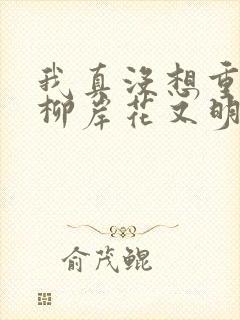 我真没想重
柳岸花又明
俞茂鲲